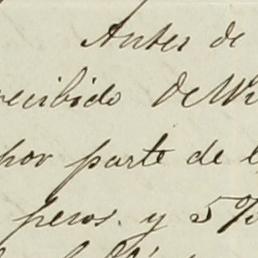 Antes de
recibido de Wi
por parte de l
pesos. y 5%